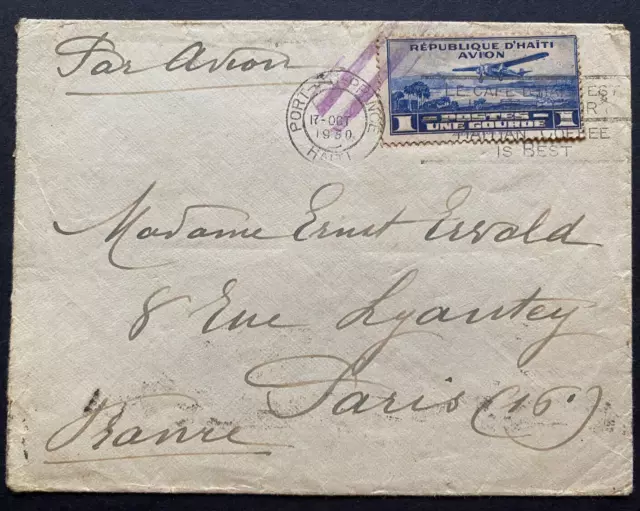 Par Avion
RÉPUBLIQUE D'HAÏTI
AVION
1 POSTES 1
UNE GOURDE
PORT-AU-PRINCE
17-OCT
1930
HAITI
LE CAFE EST
HAITIAN COFFEE
IS BEST
Madame Ernst Erwald
8 Rue Lyautey
Paris (16)
France